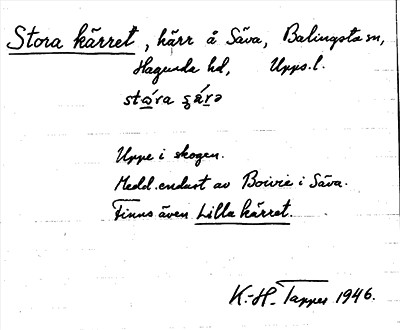 Stora kärret, kärr å Säva, Balingsta sn,
Hagunda hd, Upps. l.
stǻra ʂä́rə
Uppe i skogen.
Medd. endast av Boivie i Säva.
Finns även Lilla kärret.
K.-H. Tapper 1946.